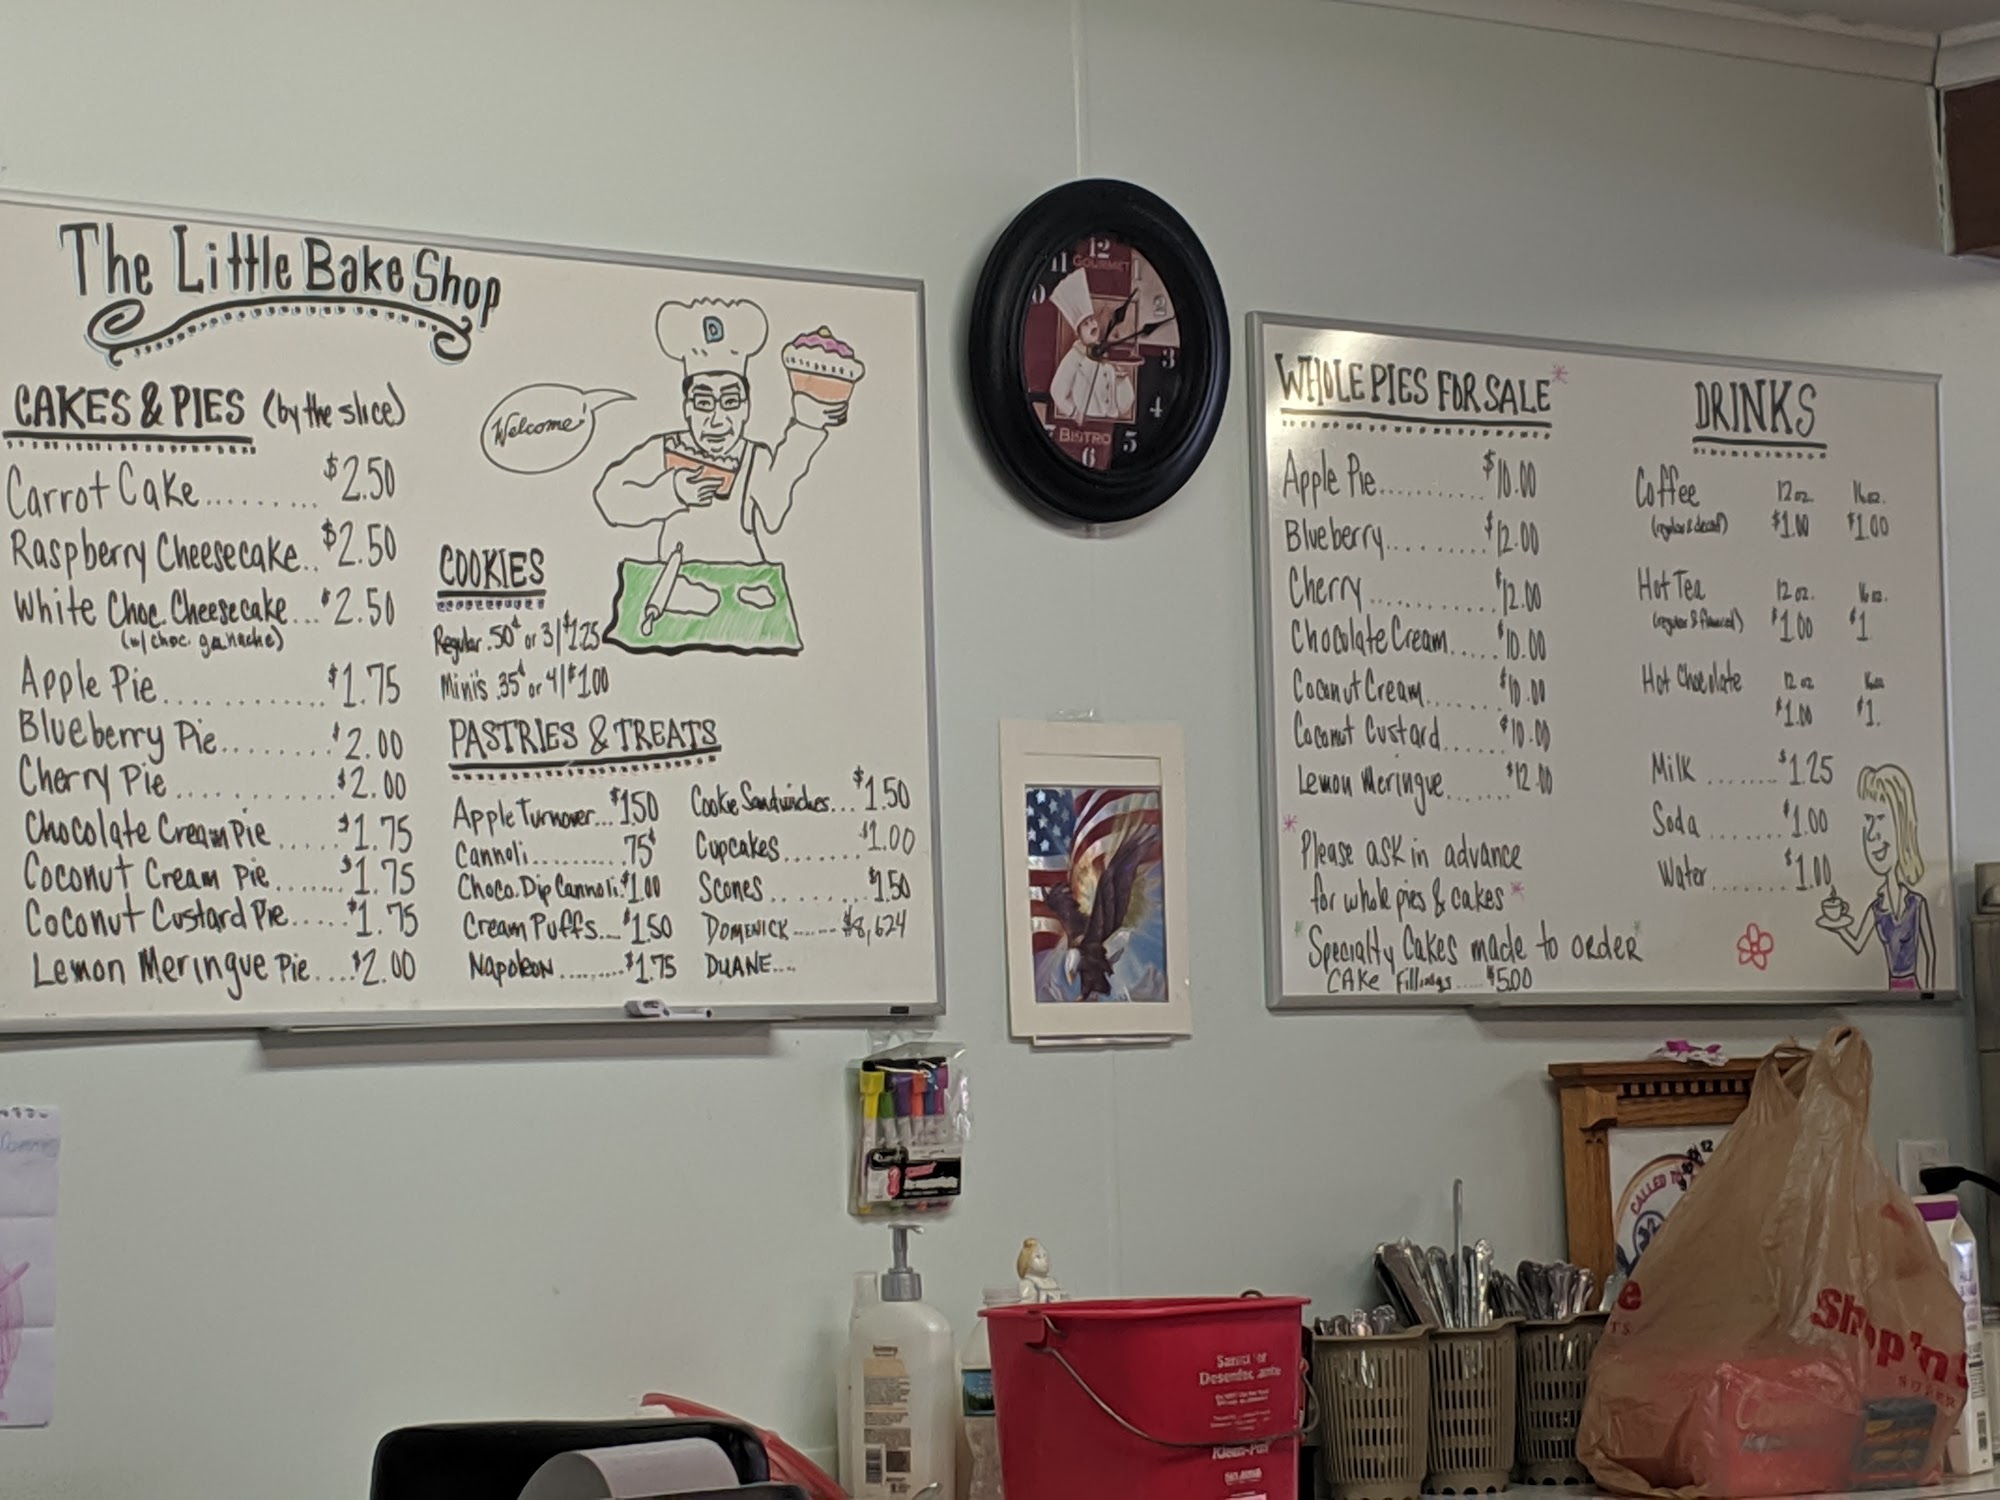 The Little Bake Shop
CAKES & PIES (by the slice)
Carrot Cake......... $2.50
Raspberry Cheesecake.. $2.50
White Choc. Cheesecake... $2.50
(w/ choc. ganache)
Apple Pie............. $1.75
Blueberry Pie........ $2.00
Cherry Pie............ $2.00
Chocolate Cream Pie..... $1.75
Coconut Cream Pie....... $1.75
Coconut Custard Pie..... $1.75
Lemon Meringue Pie.... $2.00
Welcome!
D
COOKIES
Regular .50¢ or 3/$1.25
Mini's .35¢ or 4/$1.00
PASTRIES & TREATS
Apple Turnover... $1.50
Cannoli.......... .75¢
Choco. Dip Cannoli. $1.00
Cream Puffs.... $1.50
Napoleon......... $1.75
Cookie Sandwiches... $1.50
Cupcakes....... $1.00
Scones......... $1.50
DOMENICK...... $8,624
DUANE....
12
11
1
GOURMET
2
3
4
BISTRO
5
6
7
WHOLE PIES FOR SALE*
Apple Pie........... $10.00
Blueberry.......... $12.00
Cherry............. $12.00
Chocolate Cream..... $10.00
Coconut Cream....... $10.00
Coconut Custard...... $10.00
Lemon Meringue....... $12.00
*
Please ask in advance
for whole pies & cakes *
*Specialty Cakes made to order*
CAKE Fillings.... $5.00
DRINKS
Coffee 12 oz. 16 oz.
(regular & decaf) $1.00 $1.00
Hot Tea 12 oz. 16 oz.
(regular & flavored) $1.00 $1.
Hot Chocolate 12 oz 16 oz
$1.00 $1.
Milk ........ $1.25
Soda ........ $1.00
Water ....... $1.00
CALLED TO
Kleen-Pail
Shop'n